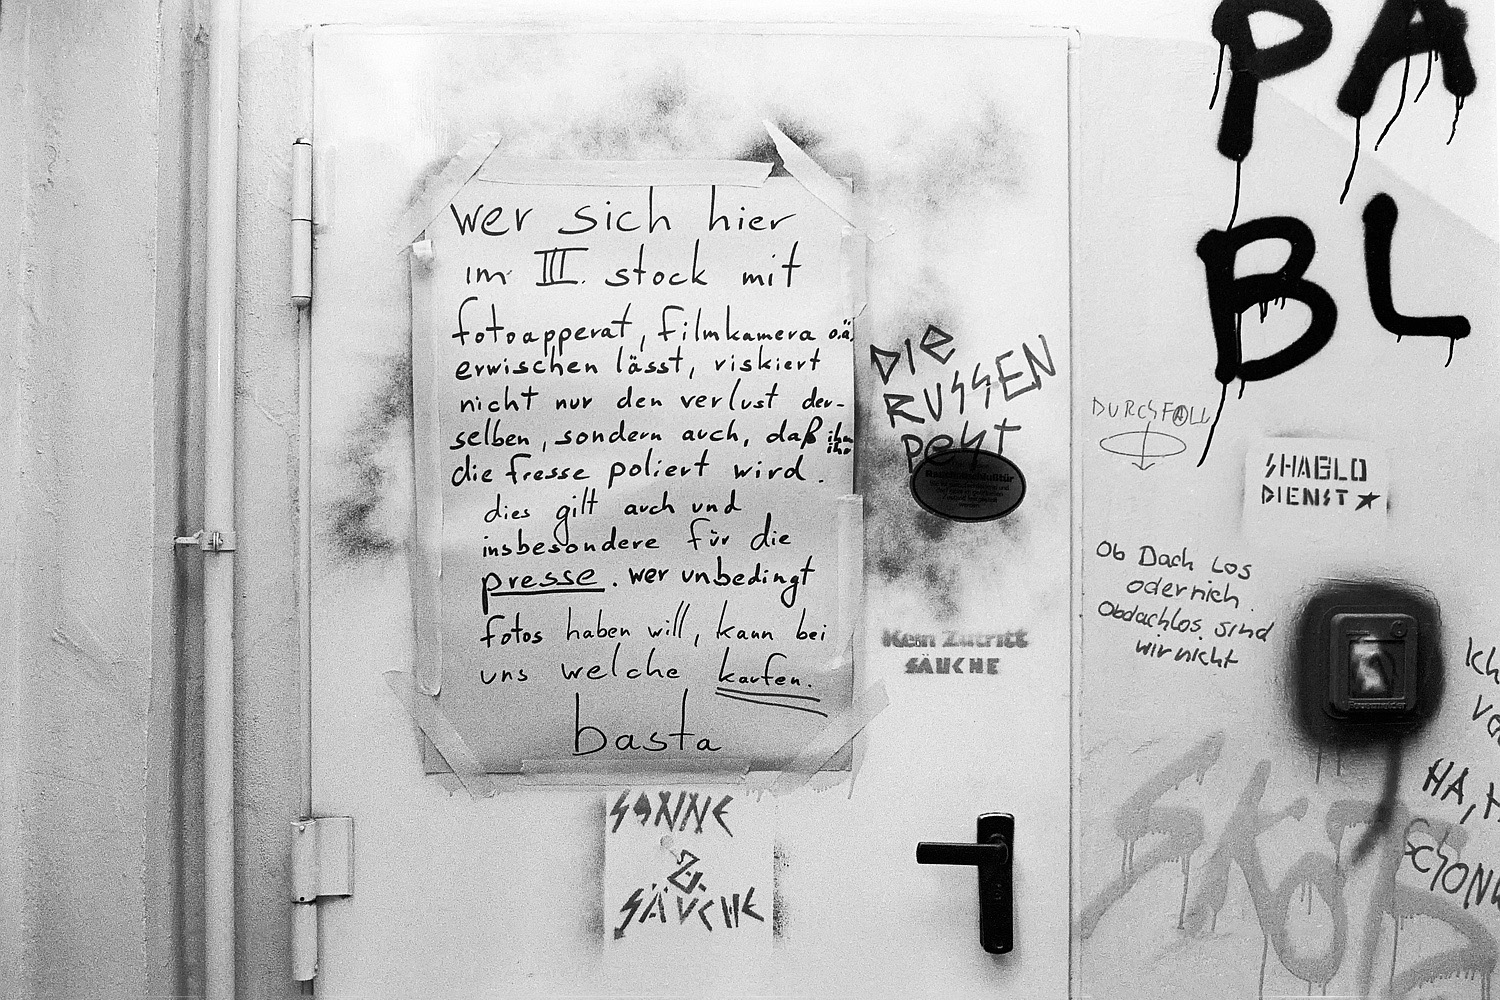 wer sich hier
im III. stock mit
fotoapperat, filmkamera o.ä.
erwischen lässt, riskiert
nicht nur den verlust der-
selben, sondern auch, daß ihm
ihr
die fresse poliert wird.
dies gilt auch und
insbesondere für die
presse. wer unbedingt
fotos haben will, kann bei
uns welche kaufen.
basta
SONNE
2
SÄUCHE
DIE
RUSSEN
PEST
Kein Zutritt
SÄUCHE
PA
BL
DURCHFALL
SHABLO
DIENST ★
Ob Dach Los
oder nich
Obdachlos sind
wir nicht
Ich
HA,
SCHON